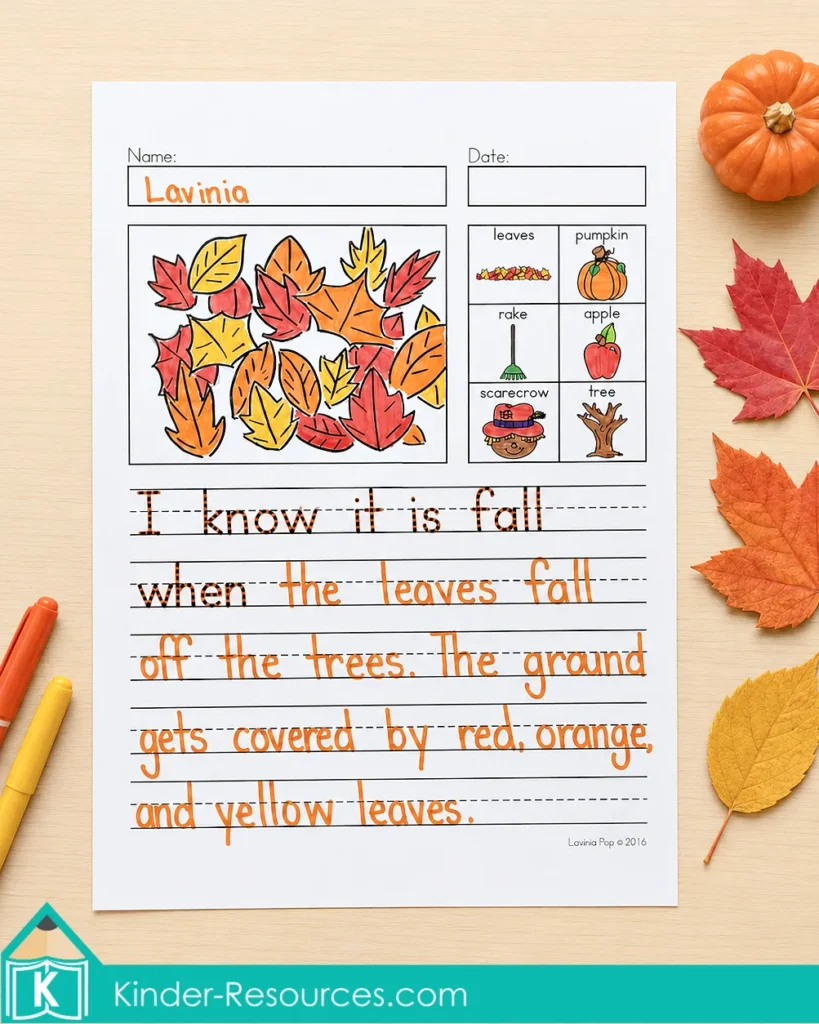 Name:
Date:
Lavinia
leaves
pumpkin
rake
apple
scarecrow
tree
I know it is fall
when the leaves fall
off the trees. The ground
gets covered by red, orange,
and yellow leaves.
Lavinia Pop © 2016
K
Kinder-Resources.com